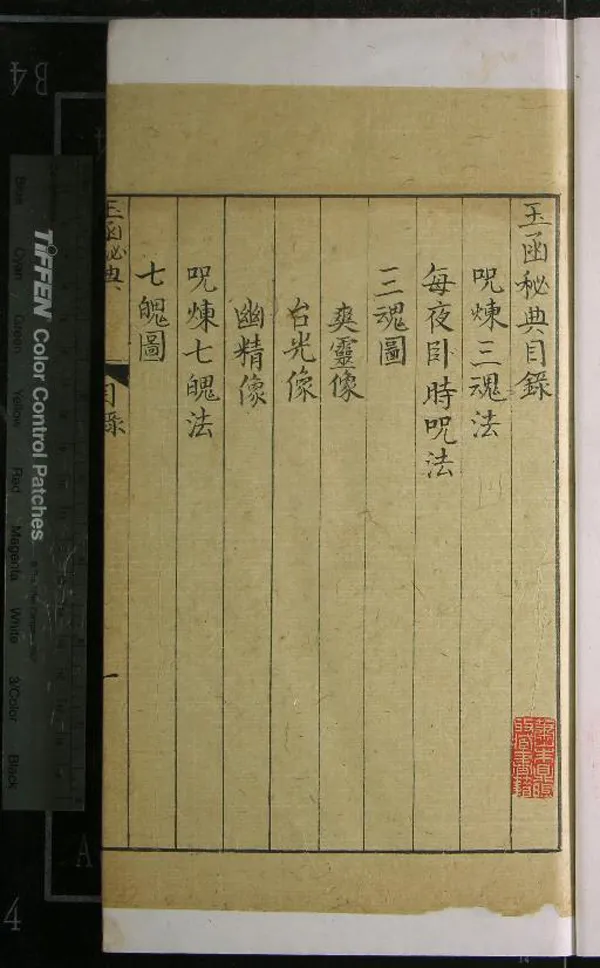 玉函秘典目錄
呪煉三魂法
每夜卧時呪法
三魂圖
爽靈像
台光像
幽精像
呪煉七魄法
七魄圖
玉函秘典
目錄
一
TIFFEN Color Control Patches
Blue Cyan Green Yellow Red Magenta White 3/Color Black
B4
A
4